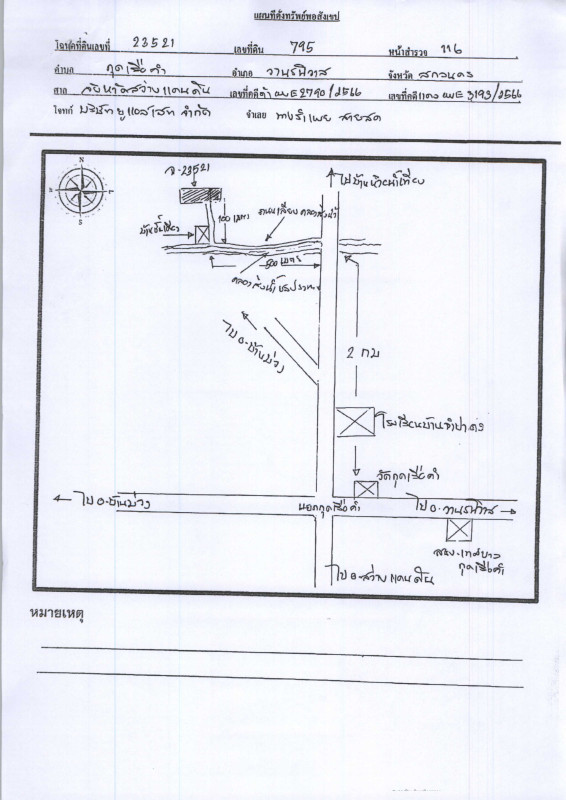 แผนที่ตั้งทรัพย์พอสังเขป
โฉนดที่ดินเลขที่ 23521 เลขที่ดิน 795 หน้าสำรวจ 116
ตำบล กุดเรือคำ อำเภอ วานรนิวาส จังหวัด สกลนคร
ศาล จังหวัดสว่างแดนดิน เลขที่คดีดำ ผบE2790/2566 เลขที่คดีแดง ผบE3193/2566
โจทก์ บริษัท ยูแอสเสท จำกัด จำเลย นางรำเพย สายสด
ฉ-23521
ไปบ้านห้วยน้ำเที่ยง
N
S
100 เมตร
ถนนเลียบคลองส่งน้ำ
500 เมตร
คลองส่งน้ำชลประทาน
ไป อ.บ้านม่วง
2 กม
โรงเรียนบ้านจำปาดง
วัดกุดเรือคำ
ไป อ.บ้านม่วง
แยกกุดเรือคำ
ไป อ.วานรนิวาส
เทศบาล
กุดเรือคำ
ไป อ.สว่างแดนดิน
หมายเหตุ